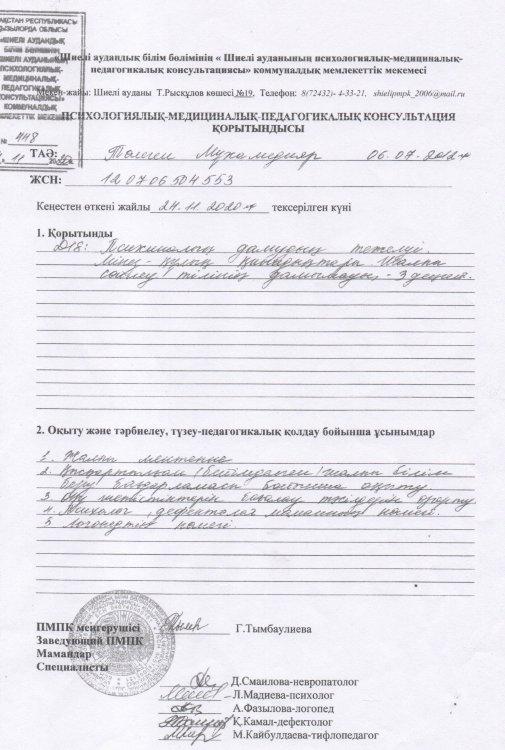 ҚАЗАҚСТАН РЕСПУБЛИКАСЫ
ҚЫЗЫЛОРДА ОБЛЫСЫ
«ШИЕЛІ АУДАНДЫҚ
БІЛІМ БӨЛІМІНІҢ
«ШИЕЛІ АУДАНЫНЫҢ
ПСИХОЛОГИЯЛЫҚ-
МЕДИЦИНАЛЫҚ-
ПЕДАГОГИКАЛЫҚ
КОНСУЛЬТАЦИЯСЫ»
КОММУНАЛДЫҚ
МЕМЛЕКЕТТІК МЕКЕМЕСІ
№ 448
«Шиелі аудандық білім бөлімінің « Шиелі ауданының психологиялық-медициналық-
педагогикалық консультациясы» коммуналдық мемлекеттік мекемесі
Мекен-жайы: Шиелі ауданы Т.Рысқұлов көшесі №19, Телефон: 8(72432)- 4-33-21, shielipmpk_2006@mail.ru
ПСИХОЛОГИЯЛЫҚ-МЕДИЦИНАЛЫҚ-ПЕДАГОГИКАЛЫҚ КОНСУЛЬТАЦИЯ
ҚОРЫТЫНДЫСЫ
ТАӘ: Төлеген Мұхамедияр 06.07.2012ж
ЖСН: 120706504553
Кеңестен өткені жайлы 24.11.2020ж тексерілген күні
1. Қорытынды
Психикалық дамудың тежелуі.
Мінез-құлық қиындықтары. Жалпы
сөйлеу тілінің дамымауы - 3 деңгей.
2. Оқыту және тәрбиелеу, түзеу-педагогикалық қолдау бойынша ұсынымдар
1. Жалпы мектепке
2. Қысқартылған /бейімделген/ жалпы білім
беру бағдарламасы бойынша оқыту.
3. Оқу жетістіктерін бағалау тәсілдерін өзгерту
4. Психолог, дефектолог маманның көмегі.
5. Логопедтің көмегі
ПМПК меңгерушісі Г.Тымбаулиева
Заведующий ПМПК
Мамандар
Специалисты
Д.Смаилова-невропатолог
Л.Мадиева-психолог
А.Фазылова-логопед
Қ.Камал-дефектолог
М.Кайбулдаева-тифлопедагог